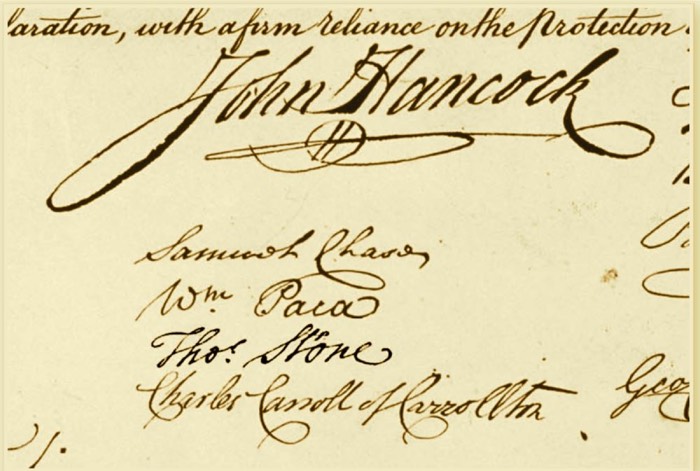 laration, with a firm reliance on the Protection
John Hancock
Samuel Chase
Wm. Paca
Thos. Stone
Charles Carroll of Carrollton
Geo